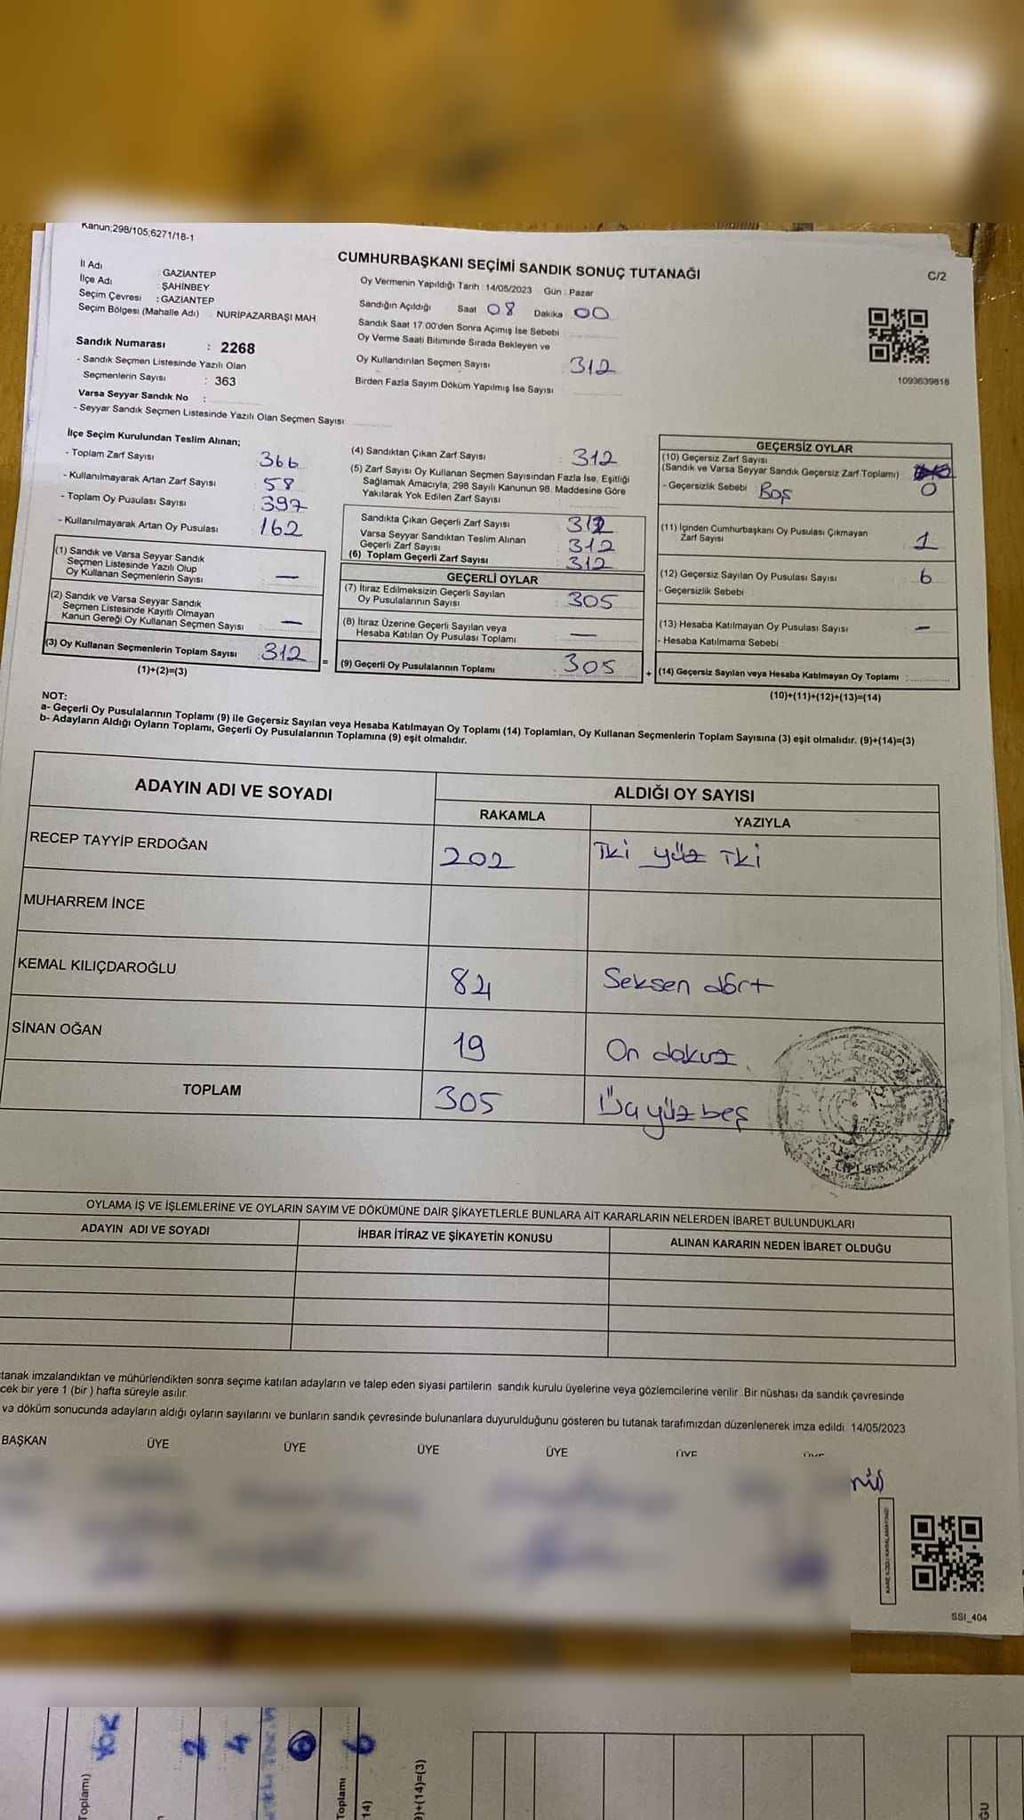 Kanun;298/105;6271/18-1
CUMHURBAŞKANI SEÇİMİ SANDIK SONUÇ TUTANAĞI
C/2
İl Adı : GAZİANTEP
İlçe Adı : ŞAHİNBEY
Seçim Çevresi : GAZİANTEP
Seçim Bölgesi (Mahalle Adı) NURİPAZARBAŞI MAH
Sandık Numarası : 2268
- Sandık Seçmen Listesinde Yazılı Olan
Seçmenlerin Sayısı : 363
Varsa Seyyar Sandık No :
- Seyyar Sandık Seçmen Listesinde Yazılı Olan Seçmen Sayısı
Oy Vermenin Yapıldığı Tarih : 14/05/2023 Gün : Pazar
Sandığın Açıldığı Saat 08 Dakika 00
Sandık Saat 17.00'den Sonra Açılmış İse Sebebi
Oy Verme Saati Bitiminde Sırada Bekleyen ve
Oy Kullandırılan Seçmen Sayısı 312
Birden Fazla Sayım Döküm Yapılmış İse Sayısı
1093639818
İlçe Seçim Kurulundan Teslim Alınan;
- Toplam Zarf Sayısı 366
- Kullanılmayarak Artan Zarf Sayısı 58
- Toplam Oy Pusulası Sayısı 397
- Kullanılmayarak Artan Oy Pusulası 162
(1) Sandık ve Varsa Seyyar Sandık
Seçmen Listesinde Yazılı Olup
Oy Kullanan Seçmenlerin Sayısı —
(2) Sandık ve Varsa Seyyar Sandık
Seçmen Listesinde Kayıtlı Olmayan
Kanun Gereği Oy Kullanan Seçmen Sayısı —
(3) Oy Kullanan Seçmenlerin Toplam Sayısı 312
(1)+(2)=(3)
(4) Sandıktan Çıkan Zarf Sayısı : 312
(5) Zarf Sayısı Oy Kullanan Seçmen Sayısından Fazla İse, Eşitliği
Sağlamak Amacıyla, 298 Sayılı Kanunun 98. Maddesine Göre
Yakılarak Yok Edilen Zarf Sayısı
Sandıkta Çıkan Geçerli Zarf Sayısı 312
Varsa Seyyar Sandıktan Teslim Alınan
Geçerli Zarf Sayısı 312
(6) Toplam Geçerli Zarf Sayısı 312
GEÇERLİ OYLAR
(7) İtiraz Edilmeksizin Geçerli Sayılan
Oy Pusulalarının Sayısı 305
(8) İtiraz Üzerine Geçerli Sayılan veya
Hesaba Katılan Oy Pusulası Toplamı —
= (9) Geçerli Oy Pusulalarının Toplamı 305
GEÇERSİZ OYLAR
(10) Geçersiz Zarf Sayısı
(Sandık ve Varsa Seyyar Sandık Geçersiz Zarf Toplamı)
- Geçersizlik Sebebi Boş 0
(11) İçinden Cumhurbaşkanı Oy Pusulası Çıkmayan
Zarf Sayısı 1
(12) Geçersiz Sayılan Oy Pusulası Sayısı 6
- Geçersizlik Sebebi
(13) Hesaba Katılmayan Oy Pusulası Sayısı —
- Hesaba Katılmama Sebebi
+ (14) Geçersiz Sayılan veya Hesaba Katılmayan Oy Toplamı :
(10)+(11)+(12)+(13)=(14)
NOT:
a- Geçerli Oy Pusulalarının Toplamı (9) ile Geçersiz Sayılan veya Hesaba Katılmayan Oy Toplamı (14) Toplamları, Oy Kullanan Seçmenlerin Toplam Sayısına (3) eşit olmalıdır. (9)+(14)=(3)
b- Adayların Aldığı Oyların Toplamı, Geçerli Oy Pusulalarının Toplamına (9) eşit olmalıdır.
ADAYIN ADI VE SOYADI ALDIĞI OY SAYISI
RAKAMLA YAZIYLA
RECEP TAYYİP ERDOĞAN 202 İki yüz İki
MUHARREM İNCE
KEMAL KILIÇDAROĞLU 84 Seksen dört
SİNAN OĞAN 19 On dokuz
TOPLAM 305 Üçyüzbeş
OYLAMA İŞ VE İŞLEMLERİNE VE OYLARIN SAYIM VE DÖKÜMÜNE DAİR ŞİKAYETLERLE BUNLARA AİT KARARLARIN NELERDEN İBARET BULUNDUKLARI
ADAYIN ADI VE SOYADI İHBAR İTİRAZ VE ŞİKAYETİN KONUSU ALINAN KARARIN NEDEN İBARET OLDUĞU
tanak imzalandıktan ve mühürlendikten sonra seçime katılan adayların ve talep eden siyasi partilerin sandık kurulu üyelerine veya gözlemcilerine verilir. Bir nüshası da sandık çevresinde
cek bir yere 1 (bir) hafta süreyle asılır.
va döküm sonucunda adayların aldığı oyların sayılarını ve bunların sandık çevresinde bulunanlara duyurulduğunu gösteren bu tutanak tarafımızdan düzenlenerek imza edildi. 14/05/2023
BAŞKAN ÜYE ÜYE ÜYE ÜYE
SSI_404
oplamı)
YOK
2
4
Toplamı
14)
6
)+(14)=(3)